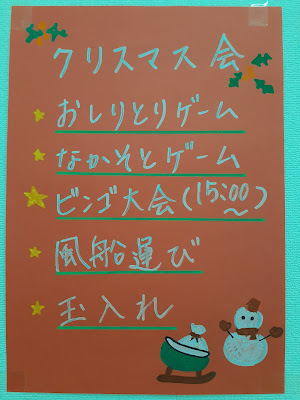 クリスマス会
おしりとりゲーム
なかそとゲーム
ビンゴ大会(15:00~)
風船運び
玉入れ